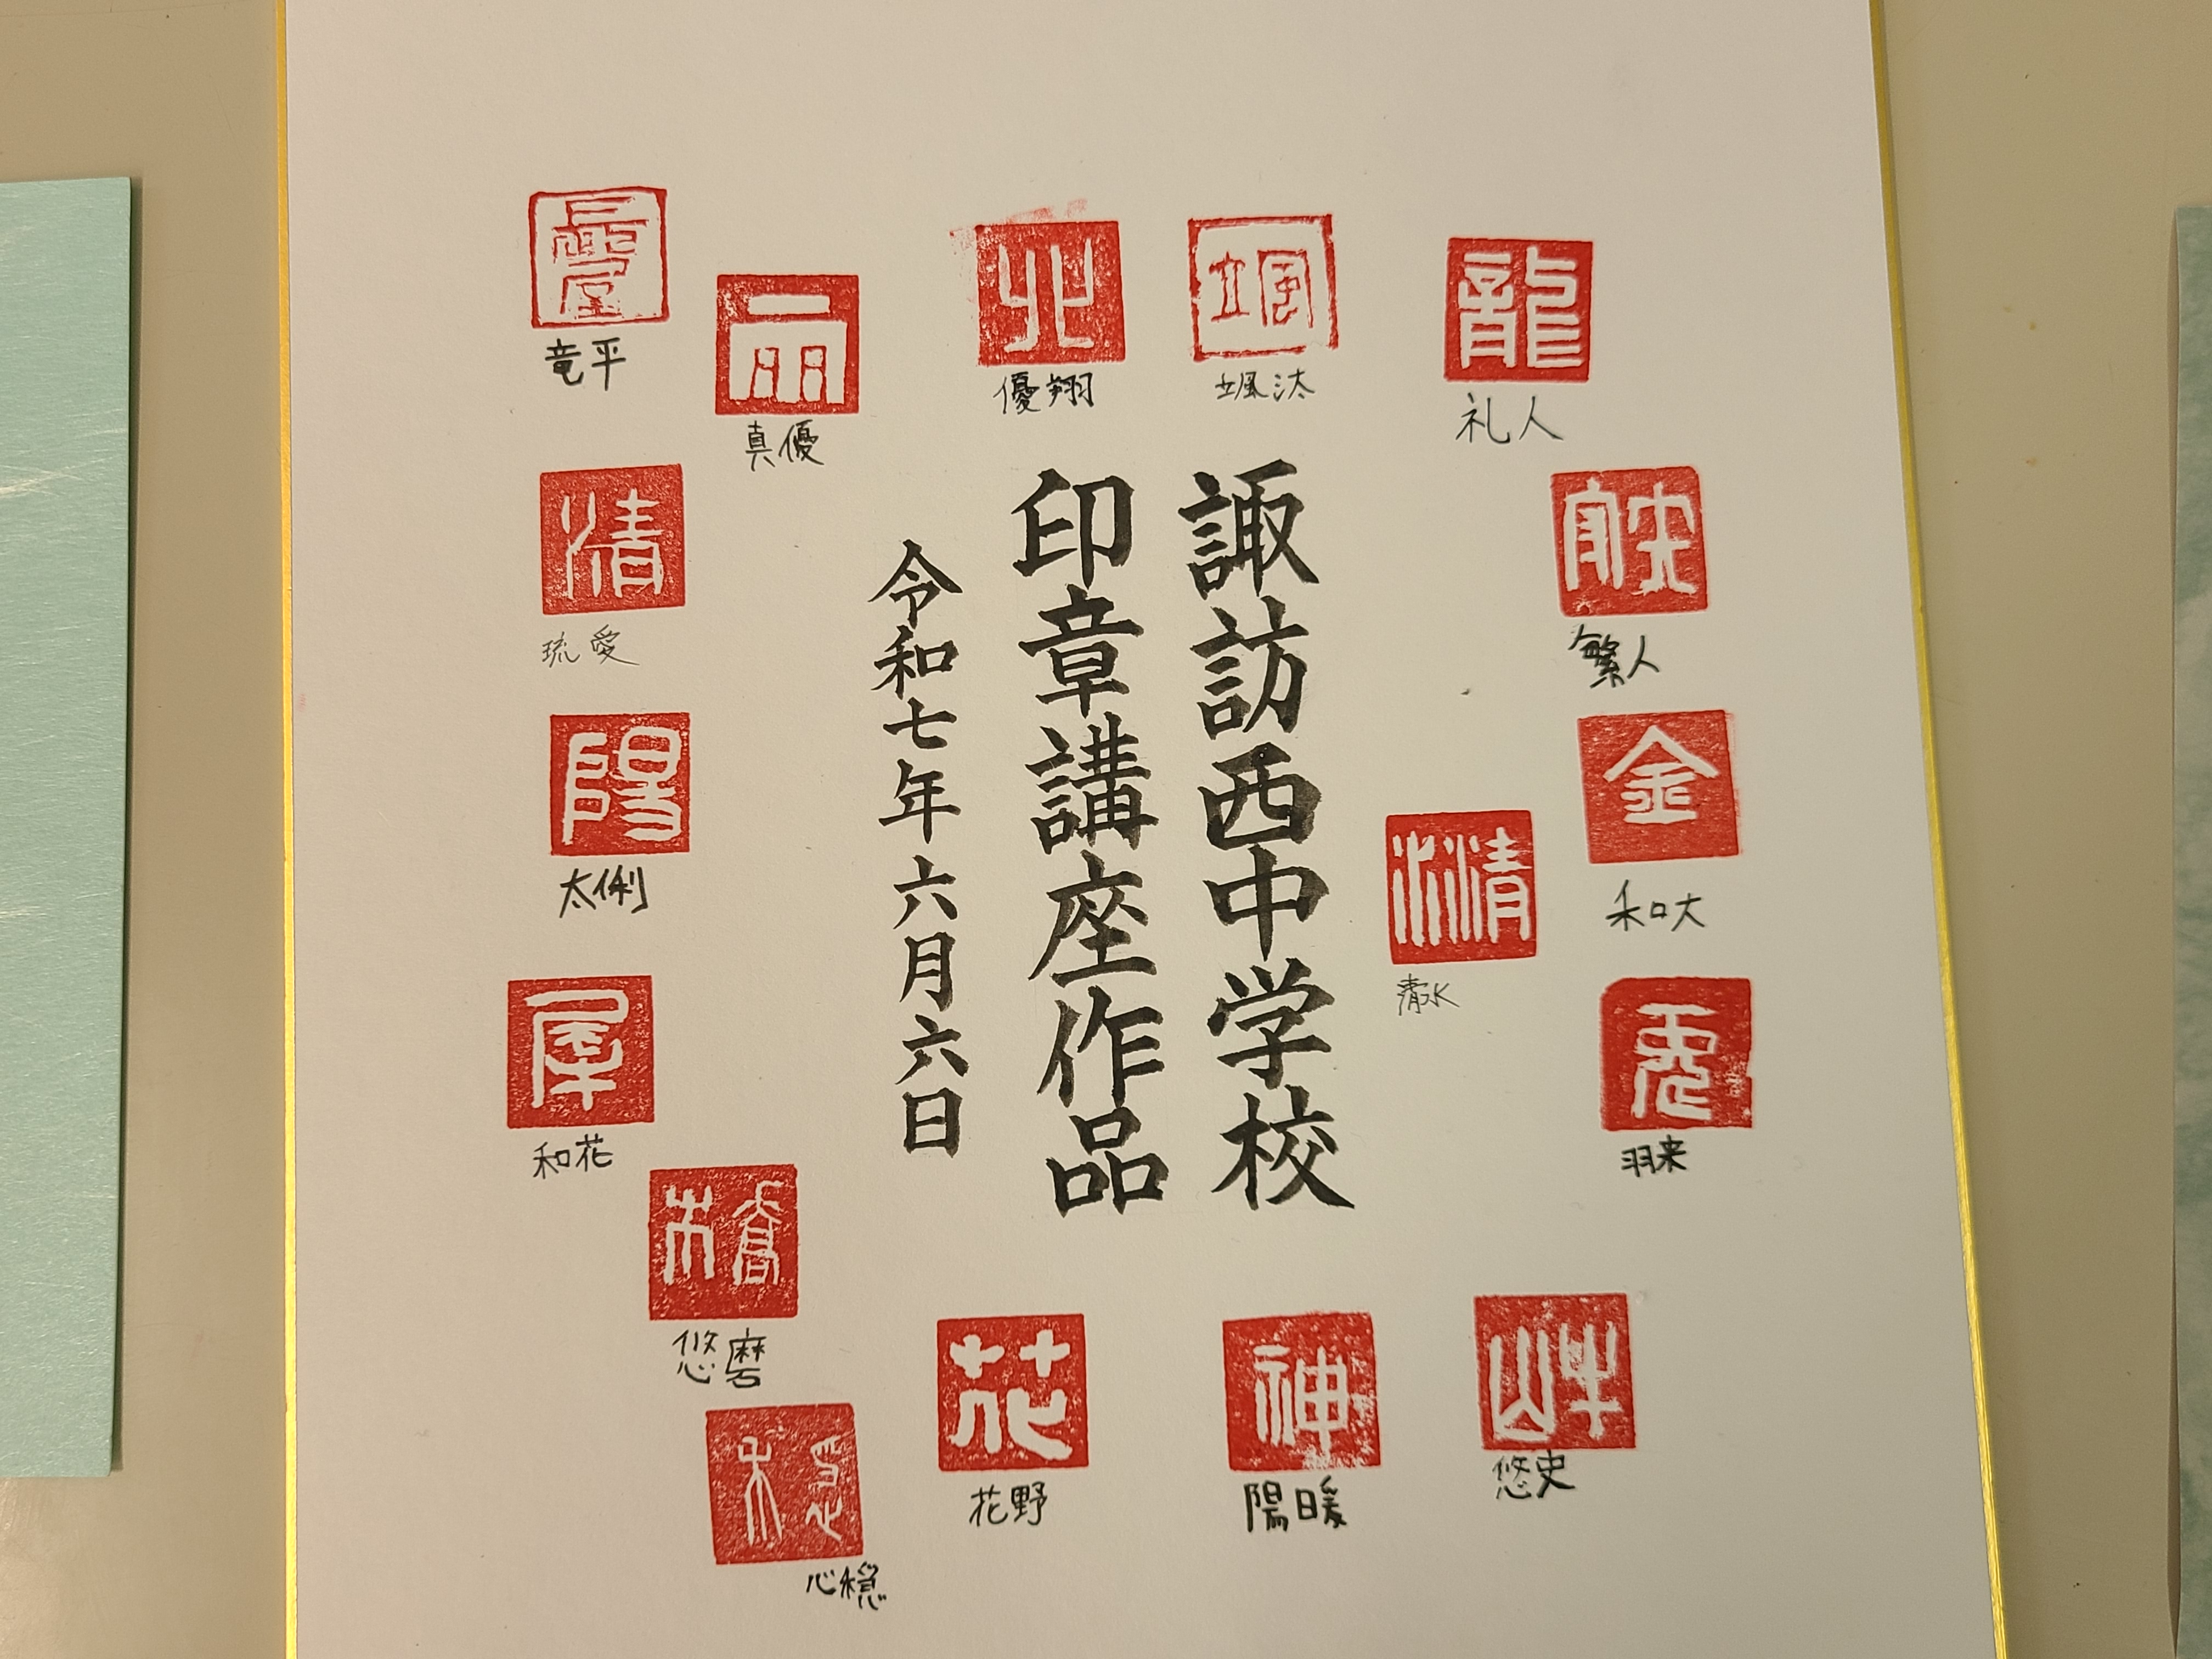 諏訪西中学校
印章講座作品
令和七年六月六日
龍
礼人
颯
颯汰
優翔
雨
真優
竜平
繁人
金
和大
清
清水
羽来
清
琉愛
陽
太俐
和花
悠磨
穏
心穏
花
花野
神
陽暖
悠史